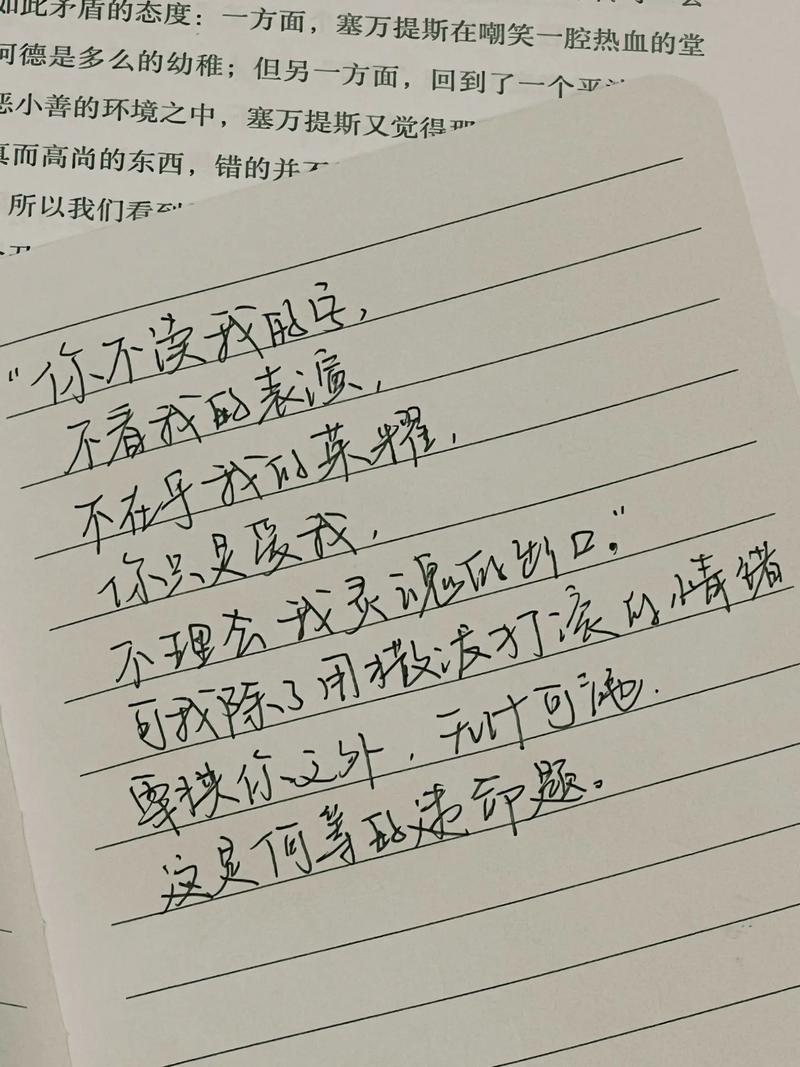 如此矛盾的态度：一方面，塞万提斯在嘲笑一腔热血的堂
河德是多么的幼稚；但另一方面，回到了一个平
恶小善的环境之中，塞万提斯又觉得那
真而高尚的东西，错的并不
所以我们看到
"你不读我的字，
不看我的表演，
不在乎我的荣耀，
你只是爱我，
不理会我灵魂的出口。"
可我除了用撒泼打滚的情绪
要挟你之外，无计可施.
这是何等的悲命题。